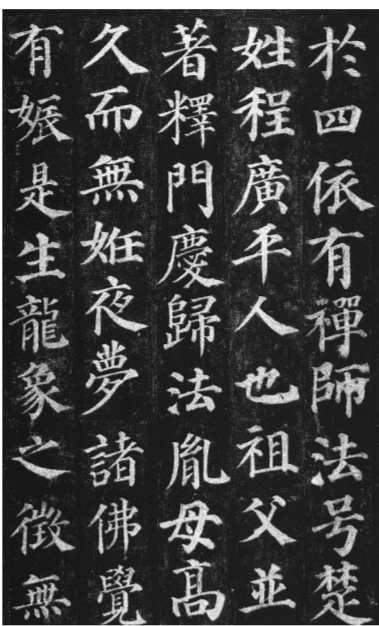 於四依有禪師法号楚
姓程廣平人也祖父並
著釋門慶歸法胤母高
久而無姙夜夢諸佛覺
有娠是生龍象之徵無